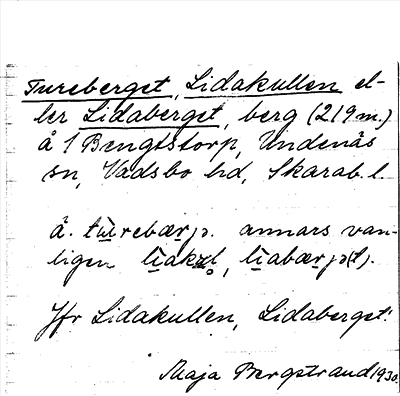 Tureberget, Lidakullen el-
ler Lidaberget, berg (219 m.)
å 1 Bengtstorp, Undenäs
sn, Vadsbo hd, Skarab. l.
å. tùrebærj. annars van-
ligen
Jfr Lidakullen, Lidaberget!
Maja Bergstrand 1930.